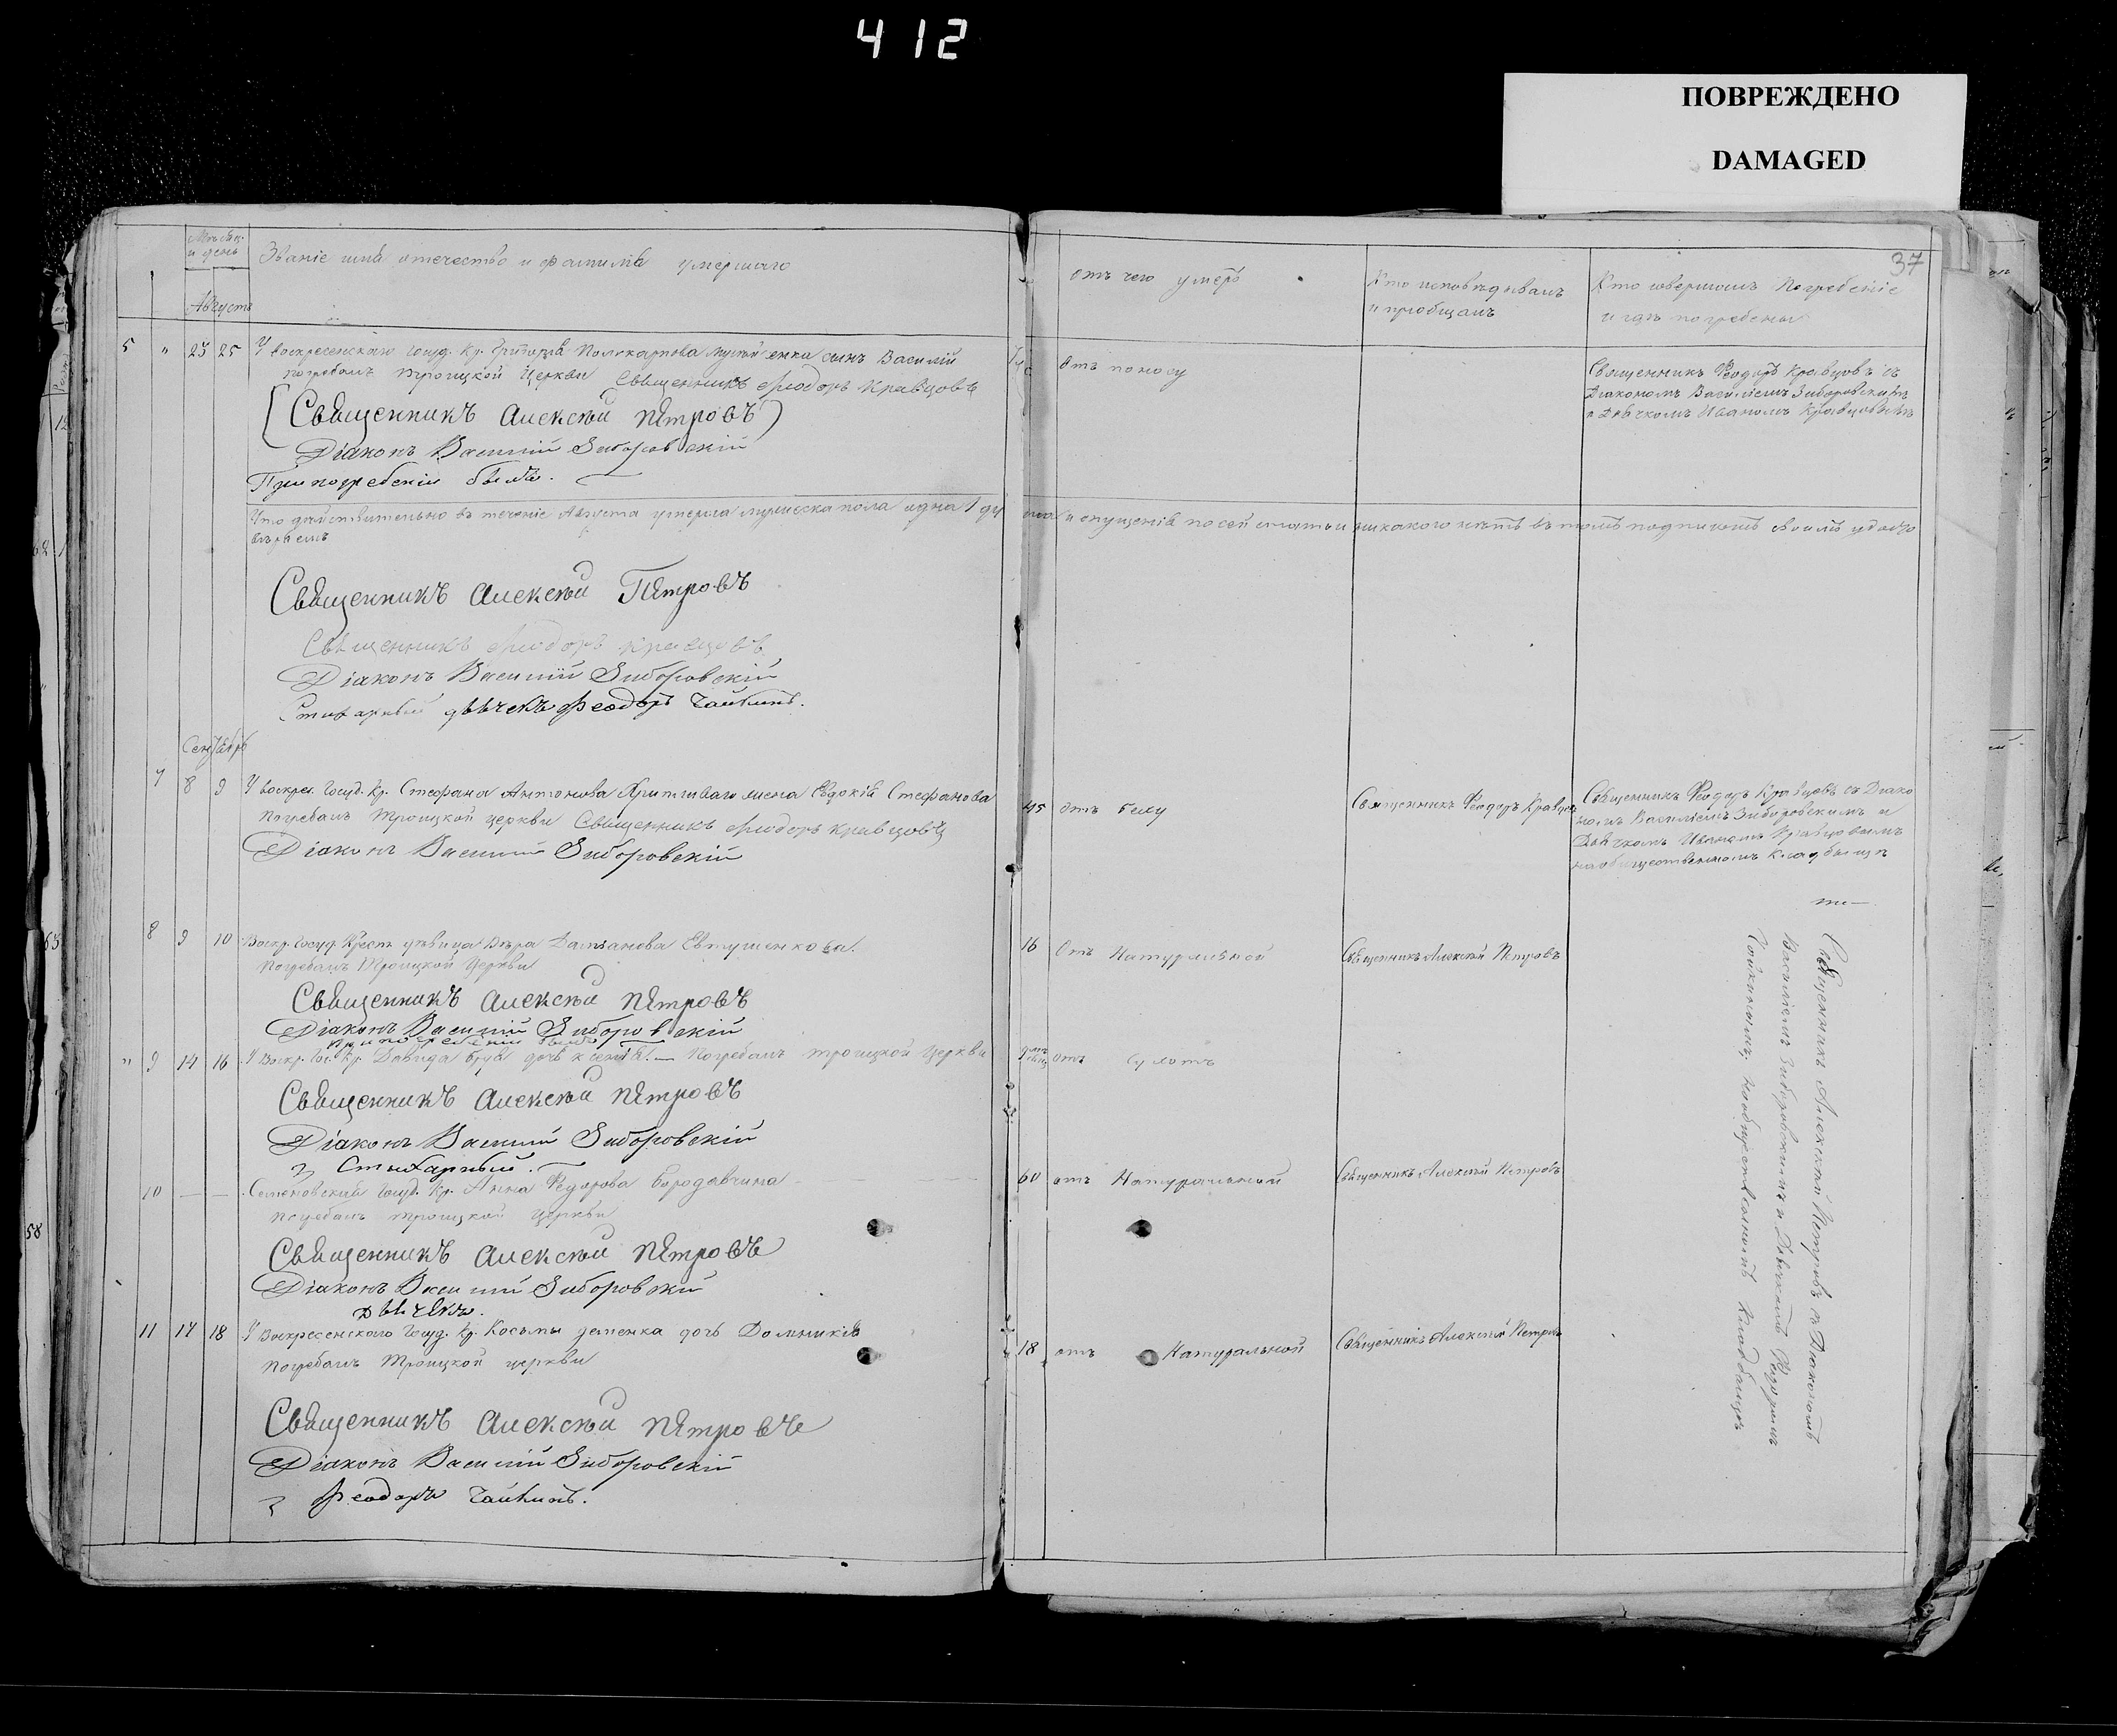 412
ПОВРЕЖДЕНО
DAMAGED
37
и день
Августъ
Званіе имя отечество и фамилія умершаго
отъ чего умеръ
Кто исповѣдывалъ
и пріобщалъ
Кто совершалъ Погребеніе
и гдѣ погребены
5 " 23 25 У воскресенскаго госуд. кр. Григорія Поликарпова сынъ Василій
погребалъ троицкой Церкви Священникъ Ѳеодоръ Кравцовъ
(Священникъ Алексѣй Петровъ)
Діаконъ Василій Зиборовскій
При погребеніи былъ.
отъ поносу
Священникъ Ѳеодоръ Кравцовъ съ
Діакономъ Василіемъ Зиборовскимъ
и Дьячкомъ Иваномъ Кравцовымъ
Что дѣйствительно въ теченіе Августа умерла мужеска пола одна 1 душа и опущенія по сей статьи никакого нѣтъ въ томъ подписомъ своимъ удосто
вѣряемъ
Священникъ Алексѣй Петровъ
Священникъ Ѳеодоръ Кравцовъ
Діаконъ Василій Зиборовскій
Стихарный дьячекъ Феодоръ Чайкинъ.
Сентябрь
7 8 9 У воскрес. госуд. кр. Стефана Антонова жена Евдокія Стефанова
погребалъ Троицкой церкви Священникъ Ѳеодоръ Кравцовъ
Діаконъ Василій Зиборовскій
45 отъ
Священникъ Ѳеодоръ Кравцовъ
Священникъ Ѳеодоръ Кравцовъ съ Діако
номъ Василіемъ Зиборовскимъ и
Дьячкомъ Иваномъ Кравцовымъ
на общественномъ кладбищѣ
8 9 10 Воскр. госуд. Крест. дѣвица Вѣра Даміанова Евтушенкова.
погребалъ Троицкой Церкви
Священникъ Алексѣй Петровъ
Діаконъ Василій Зиборовскій
При погребеніи былъ
16 Отъ Натуральной
Священникъ Алексѣй Петровъ
" 9 14 16 У Воскр. гос. кр. Давида дочь Ксенія. — Погребалъ троицкой Церкви
Священникъ Алексѣй Петровъ
Діаконъ Василій Зиборовскій
и Стихарный.
отъ
10 — — Семеновскій госуд. кр. Анна Ѳедорова Бородавчина
погребалъ троицкой Церкви
Священникъ Алексѣй Петровъ
Діаконъ Василій Зиборовскій
дьячекъ.
60 отъ Натуральной
Священникъ Алексѣй Петровъ
11 17 18 У Воскресенскаго госуд. кр. Косьмы дочь Домникія
погребалъ Троицкой церкви
Священникъ Алексѣй Петровъ
Діаконъ Василій Зиборовскій
и Феодоръ Чайкинъ.
18 отъ Натуральной
Священникъ Алексѣй Петровъ
Священникъ Алексѣй Петровъ съ Діакономъ
Василіемъ Зиборовскимъ и Дьячкомъ Ѳедоромъ
Чайкинымъ, на общественномъ кладбищѣ
58